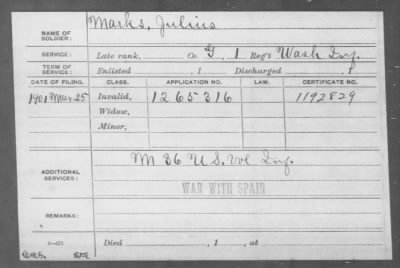 NAME OF SOLDIER: Marks, Julius
SERVICE: Late rank, Co. G, 1 Reg't Wash Inf.
TERM OF SERVICE: Enlisted , 1 Discharged , 1
DATE OF FILING. CLASS. APPLICATION NO. LAW. CERTIFICATE NO.
1901 Mar. 25 Invalid, 1265316 1192829
Widow,
Minor,
ADDITIONAL SERVICES: M 36 U.S. Vol Inf.
WAR WITH SPAIN
REMARKS:
Died , 1 , at